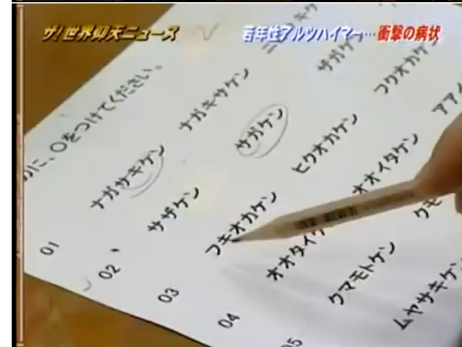 ザ!世界仰天ニュース
若年性アルツハイマー…衝撃の病状
に、○をつけてください。
01 ナガサキケン ナガキサケン
02 サザケン サガケン
03 フキオカケン ヒクオカケン フクオカケン
04 オオタイケン オオイタケン
05 クマモトケン
ムヤサキケン